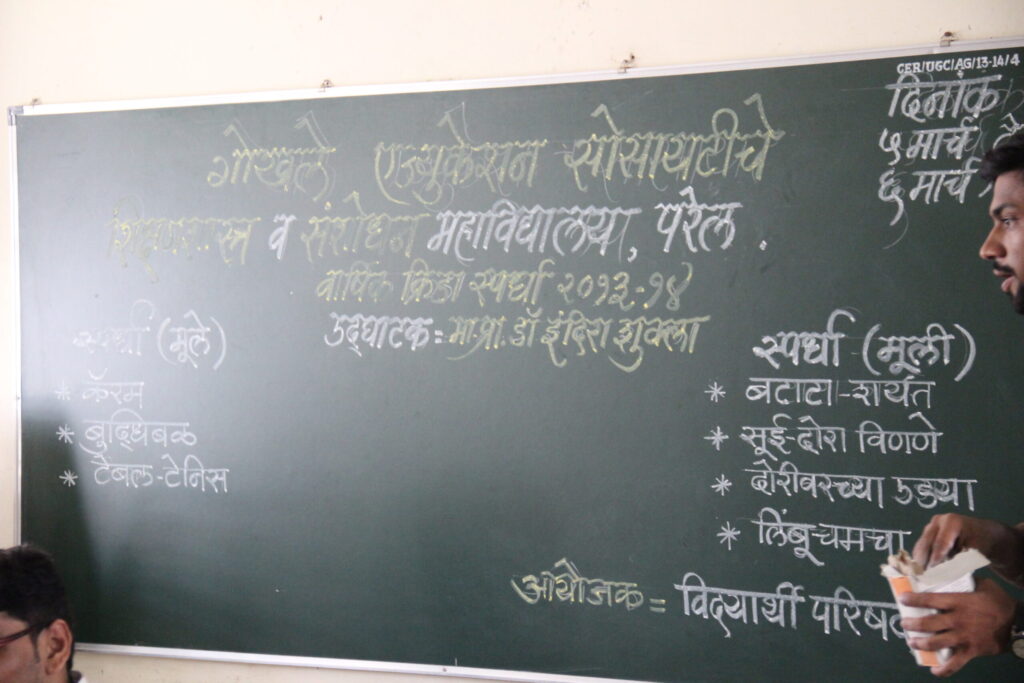 CER/UGC/AG/13-14/4
दिनांक
५ मार्च
६ मार्च
गोखले एज्युकेशन सोसायटीचे
शिक्षणशास्त्र व संशोधन महाविद्यालया, परेल .
वार्षिक क्रिडा स्पर्धा २०१३-१४
उद्घाटक = मा.प्रा. डॉ इंदिरा शुक्ला
स्पर्धा (मूले)
* कॅरम
* बुद्धिबळ
* टेबल-टेनिस
स्पर्धा (मूली)
* बटाटा-शर्यत
* सूई-दोरा विणणे
* दोरीवरच्या उड्या
* लिंबू-चमचा
आयोजक = विद्यार्थी परिषद